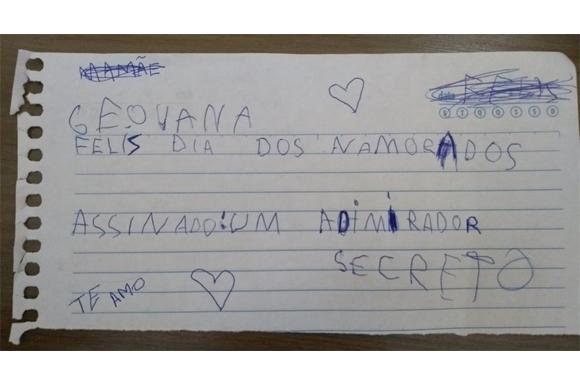 MAMÃE
GEOVANA
FELIS DIA DOS NAMORADOS
ASSINADO:UM ADIMIRADOR
SECRETO
TE AMO